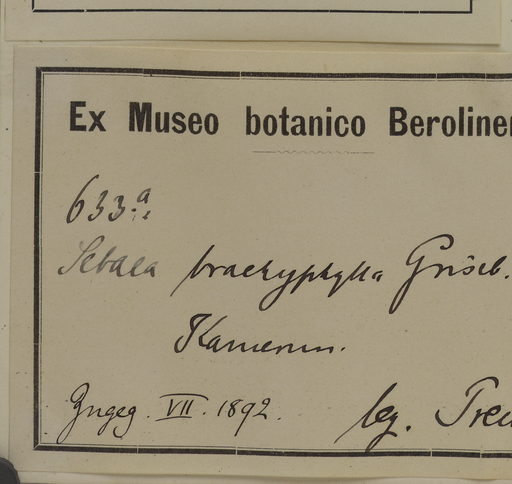 Ex Museo botanico Beroline
633.a.
Sebaea brachyphylla Griseb.
Kamerun.
Engeg. VII. 1892. leg. Preu